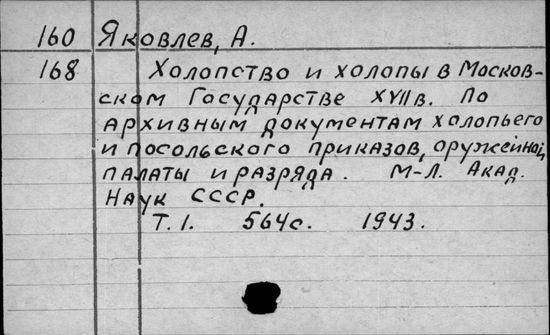 160 Яковлев, А.
168 Холопство и холопы в Москов-
ском Государстве XVII в. По
архивным документам холопьего
и посольского приказов, оружейной
палаты и разряда. М-Л. Акад.
Наук СССР.
Т. I. 564с. 1943.